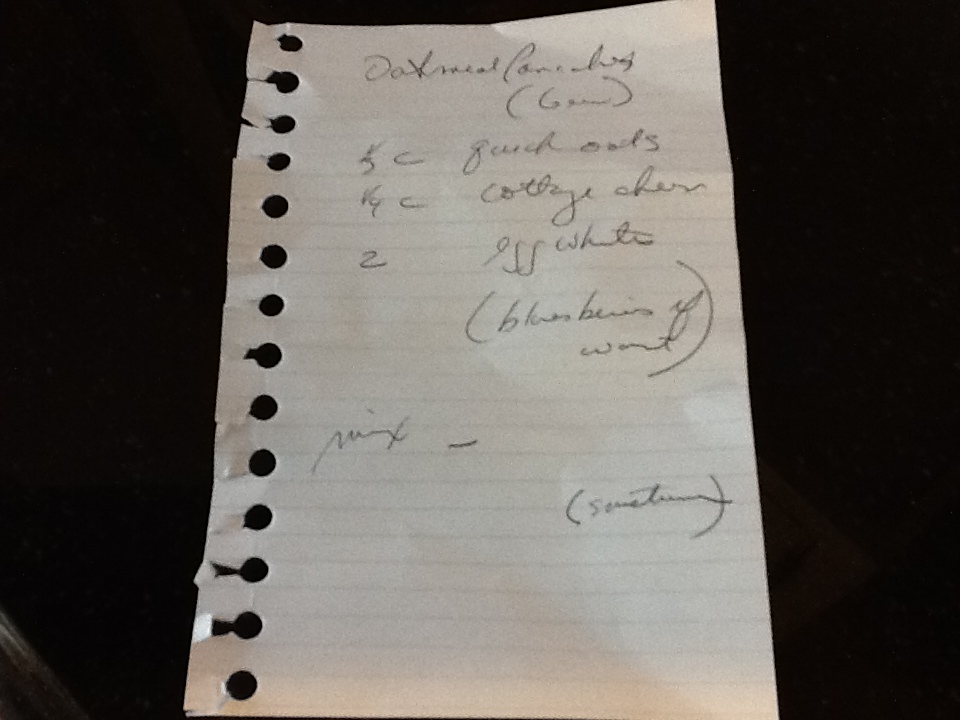 Oatmeal Pancakes
c quick oats
1/4 c cottage cheese
2 egg whites
(blueberries if
want)
mix -